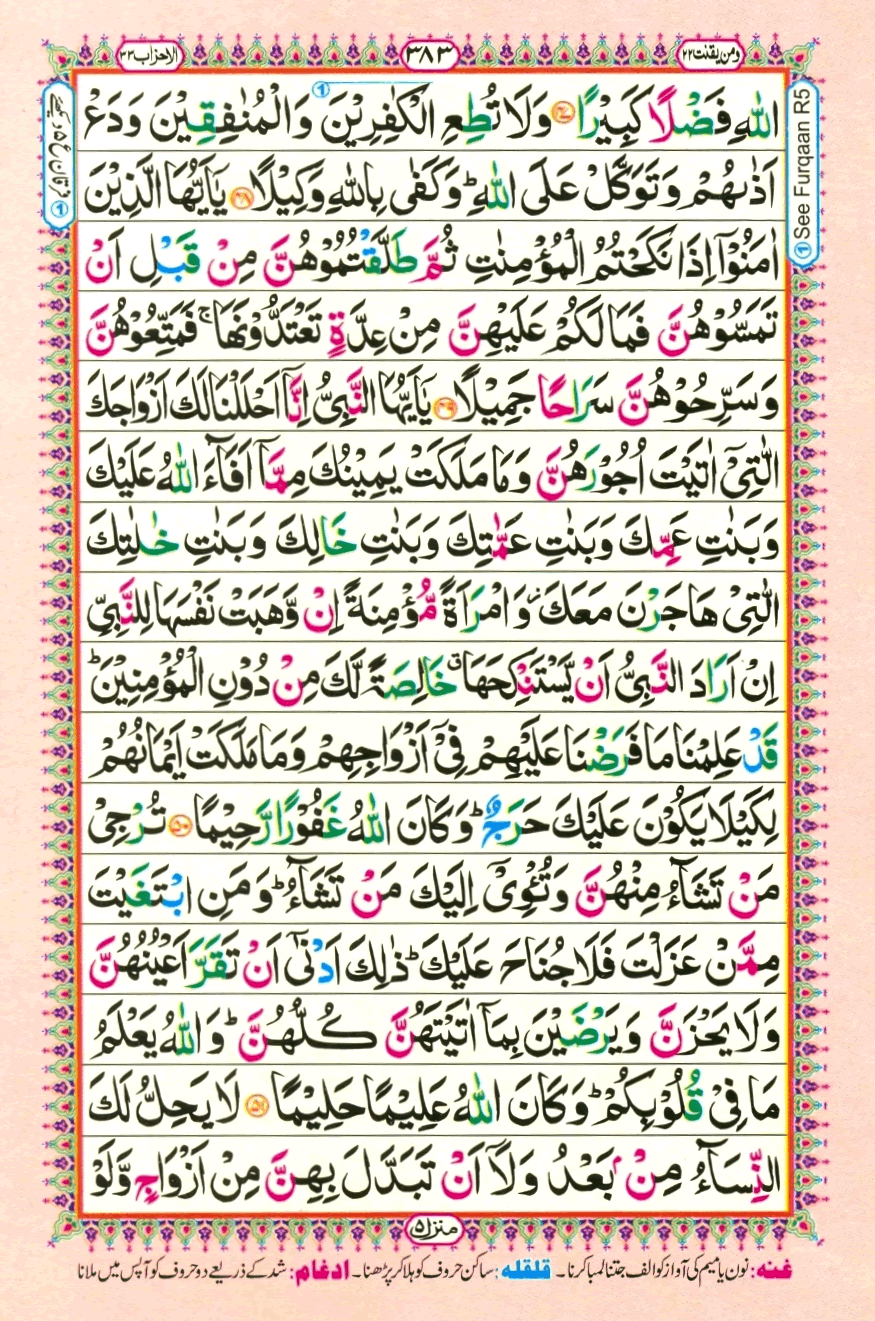 ومن یقنت ٢٢
٣٨٣
الاحزاب ٣٣
اللّٰهِ فَضْلًا كَبِيْرًا ﴿٤٧﴾ وَلَا تُطِعِ الْكٰفِرِيْنَ وَالْمُنٰفِقِيْنَ وَدَعْ
اَذٰىهُمْ وَتَوَكَّلْ عَلَى اللّٰهِ ؕ وَكَفٰى بِاللّٰهِ وَكِيْلًا ﴿٤٨﴾ يٰۤاَيُّهَا الَّذِيْنَ
اٰمَنُوْۤا اِذَا نَكَحْتُمُ الْمُؤْمِنٰتِ ثُمَّ طَلَّقْتُمُوْهُنَّ مِنْ قَبْلِ اَنْ
تَمَسُّوْهُنَّ فَمَا لَكُمْ عَلَيْهِنَّ مِنْ عِدَّةٍ تَعْتَدُّوْنَهَا ۚ فَمَتِّعُوْهُنَّ
وَسَرِّحُوْهُنَّ سَرَاحًا جَمِيْلًا ﴿٤٩﴾ يٰۤاَيُّهَا النَّبِيُّ اِنَّاۤ اَحْلَلْنَا لَكَ اَزْوَاجَكَ
الّٰتِيْۤ اٰتَيْتَ اُجُوْرَهُنَّ وَمَا مَلَكَتْ يَمِيْنُكَ مِمَّاۤ اَفَآءَ اللّٰهُ عَلَيْكَ
وَبَنٰتِ عَمِّكَ وَبَنٰتِ عَمّٰتِكَ وَبَنٰتِ خَالِكَ وَبَنٰتِ خٰلٰتِكَ
الّٰتِيْ هَاجَرْنَ مَعَكَ ؗ وَامْرَاَةً مُّؤْمِنَةً اِنْ وَّهَبَتْ نَفْسَهَا لِلنَّبِيِّ
اِنْ اَرَادَ النَّبِيُّ اَنْ يَّسْتَنْكِحَهَا ۗ خَالِصَةً لَّكَ مِنْ دُوْنِ الْمُؤْمِنِيْنَ ؕ
قَدْ عَلِمْنَا مَا فَرَضْنَا عَلَيْهِمْ فِيْۤ اَزْوَاجِهِمْ وَمَا مَلَكَتْ اَيْمَانُهُمْ
لِكَيْلَا يَكُوْنَ عَلَيْكَ حَرَجٌ ؕ وَكَانَ اللّٰهُ غَفُوْرًا رَّحِيْمًا ﴿٥٠﴾ تُرْجِيْ
مَنْ تَشَآءُ مِنْهُنَّ وَتُـْٔوِيْۤ اِلَيْكَ مَنْ تَشَآءُ ؕ وَمَنِ ابْتَغَيْتَ
مِمَّنْ عَزَلْتَ فَلَا جُنَاحَ عَلَيْكَ ؕ ذٰلِكَ اَدْنٰۤى اَنْ تَقَرَّ اَعْيُنُهُنَّ
وَلَا يَحْزَنَّ وَيَرْضَيْنَ بِمَاۤ اٰتَيْتَهُنَّ كُلُّهُنَّ ؕ وَاللّٰهُ يَعْلَمُ
مَا فِيْ قُلُوْبِكُمْ ؕ وَكَانَ اللّٰهُ عَلِيْمًا حَلِيْمًا ﴿٥١﴾ لَا يَحِلُّ لَكَ
النِّسَآءُ مِنْۢ بَعْدُ وَلَاۤ اَنْ تَبَدَّلَ بِهِنَّ مِنْ اَزْوَاجٍ وَّلَوْ
① See Furqaan R5
① فرقان رع ۵ دیکھئے
منزل ۵
غنه: نون یا میم کی آواز کو الف جتنا لمبا کرنا۔ قلقله: ساکن حروف کو ہلا کر پڑھنا۔ ادغام: شد کے ذریعے دو حروف کو آپس میں ملانا